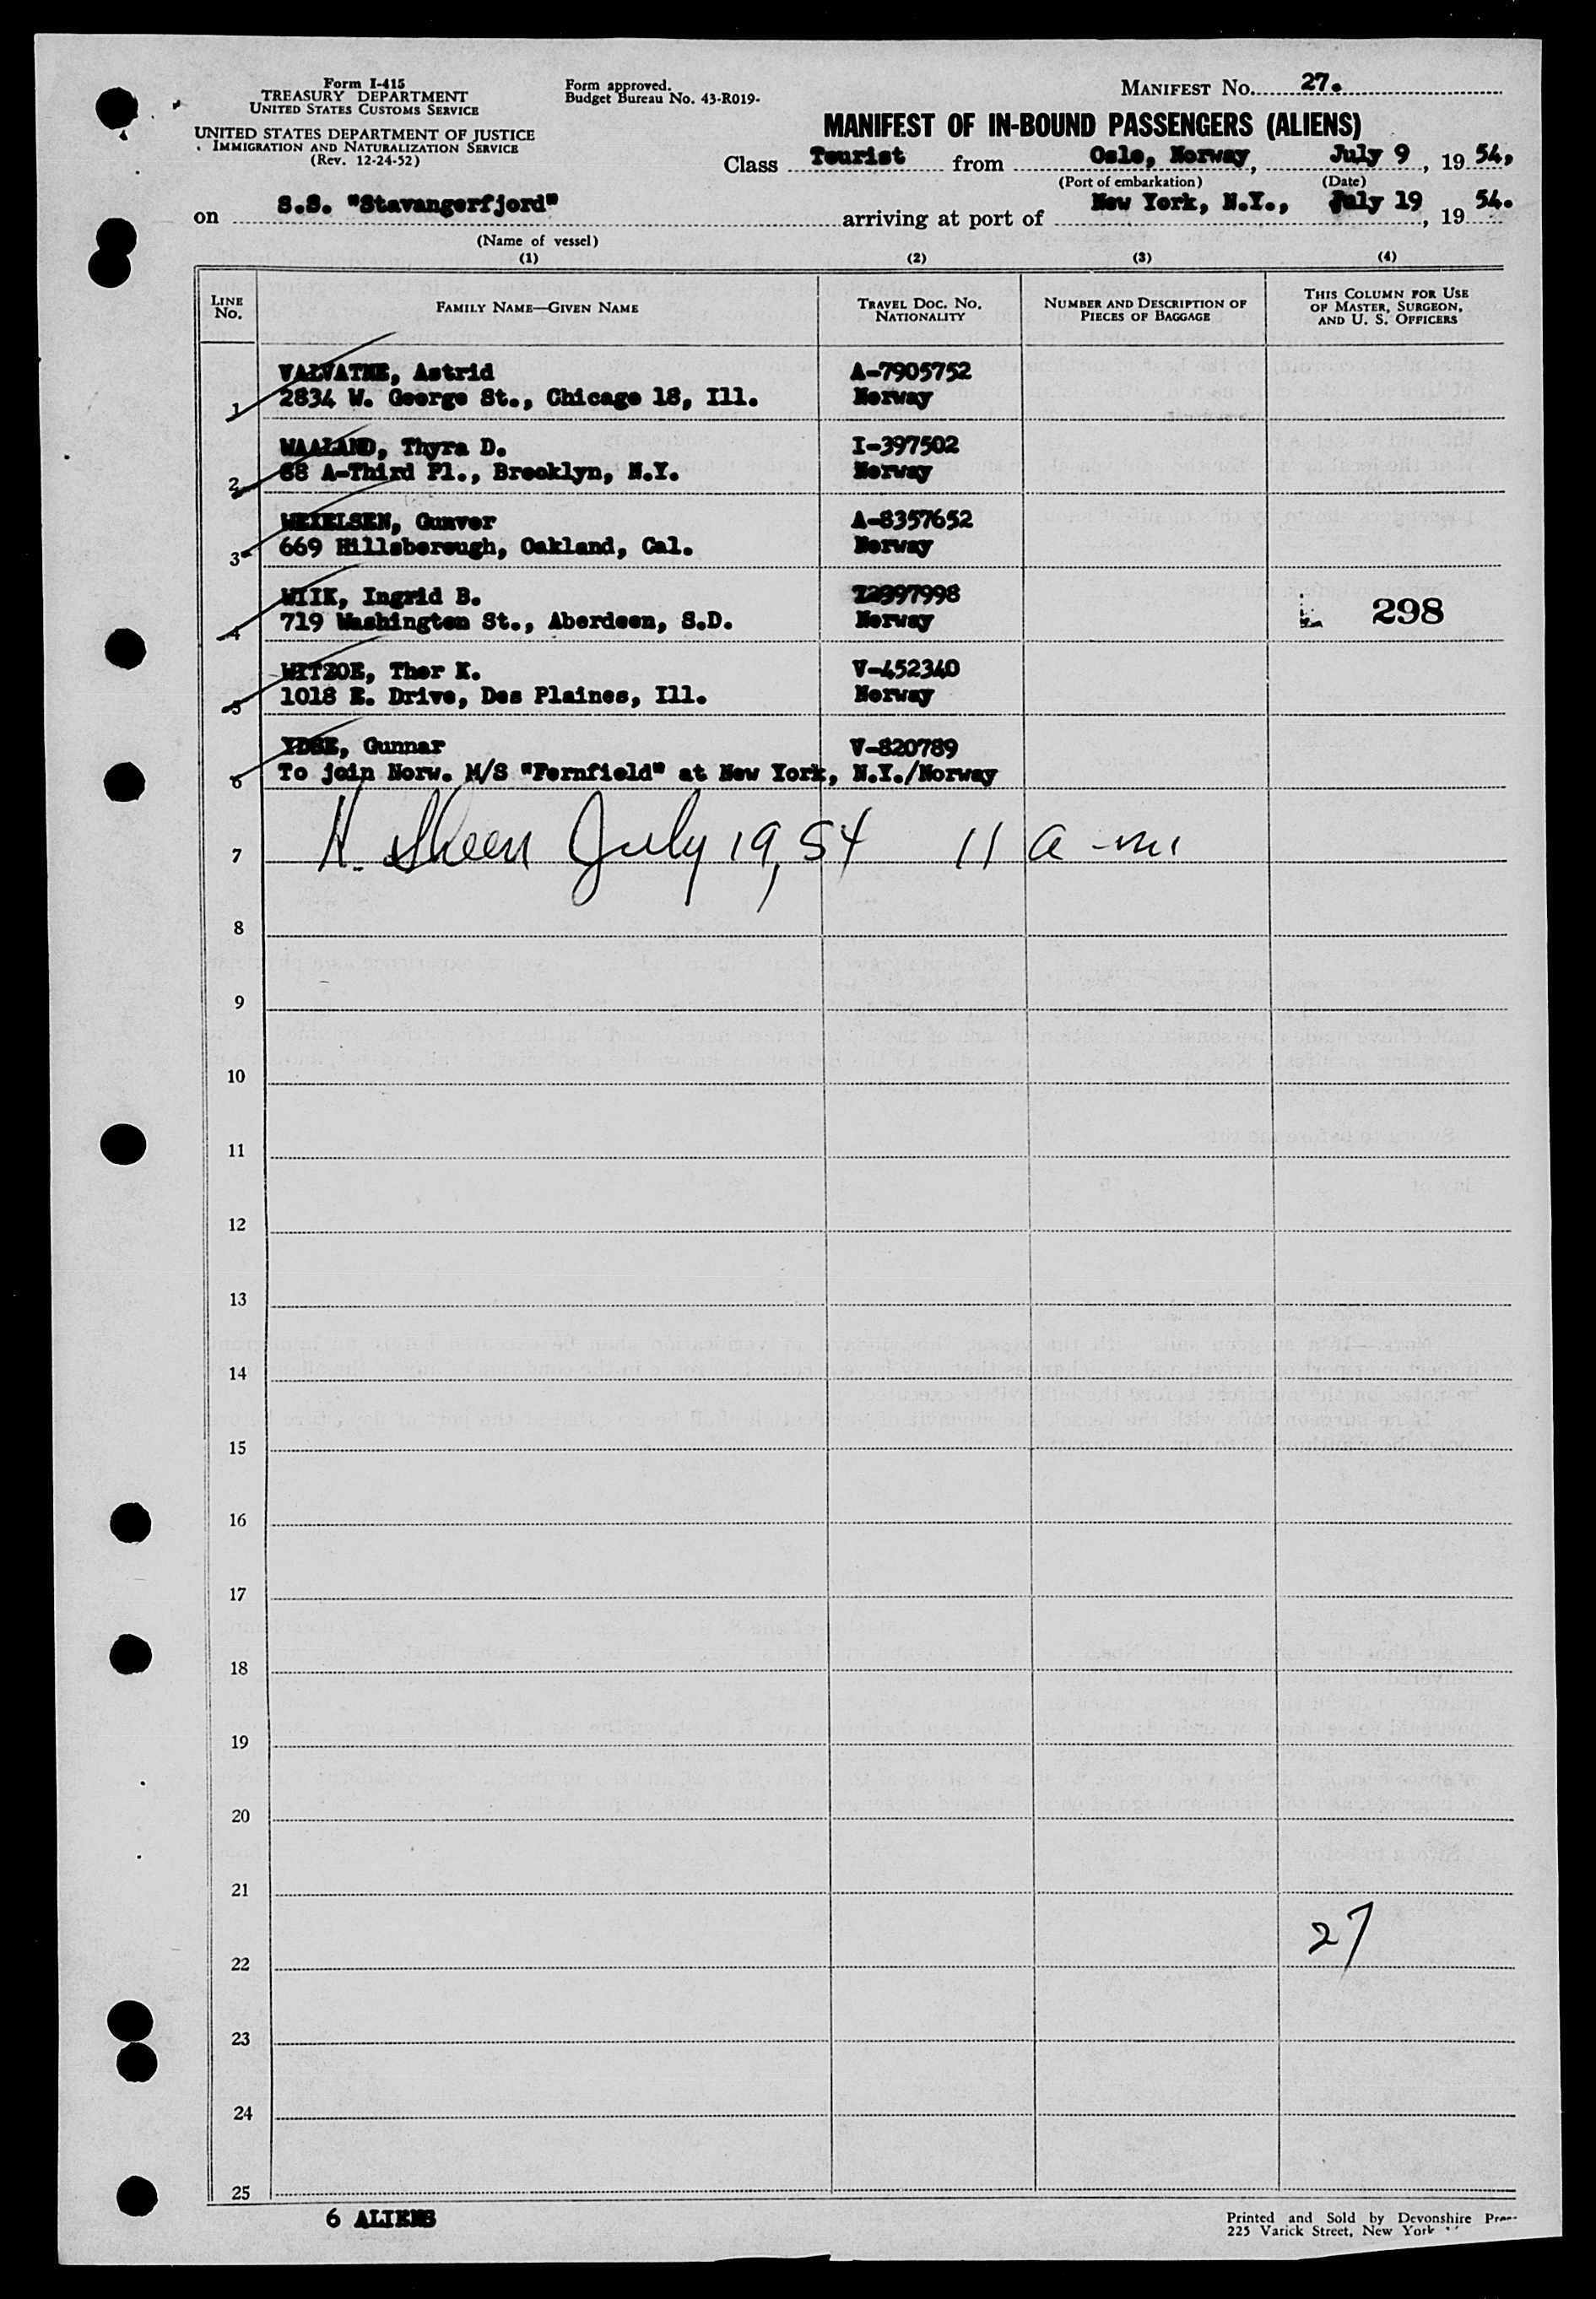 Form I-415
TREASURY DEPARTMENT
UNITED STATES CUSTOMS SERVICE
UNITED STATES DEPARTMENT OF JUSTICE
IMMIGRATION AND NATURALIZATION SERVICE
(Rev. 12-24-52)
Form approved.
Budget Bureau No. 43-R019.
MANIFEST NO. 27.
MANIFEST OF IN-BOUND PASSENGERS (ALIENS)
Class Tourist from Oslo, Norway, July 9, 19 54,
(Port of embarkation) (Date)
on S.S. "Stavangerfjord" arriving at port of New York, N.Y., July 19, 19 54.
(Name of vessel)
(1) (2) (3) (4)
LINE NO. FAMILY NAME—GIVEN NAME TRAVEL DOC. NO. NATIONALITY NUMBER AND DESCRIPTION OF PIECES OF BAGGAGE THIS COLUMN FOR USE OF MASTER, SURGEON, AND U. S. OFFICERS
VALVATNE, Astrid A-7905752
1 2834 W. George St., Chicago 18, Ill. Norway
WAALAND, Thyra D. I-397502
2 88 A-Third Pl., Brooklyn, N.Y. Norway
WEXELSEN, Gunvor A-8357652
3 669 Hillsborough, Oakland, Cal. Norway
WIIK, Ingrid B. I2397998
4 719 Washington St., Aberdeen, S.D. Norway 298
WITZOE, Thor K. V-452340
5 1018 E. Drive, Des Plaines, Ill. Norway
YDSE, Gunnar V-820789
6 To join Norw. M/S "Fernfield" at New York, N.Y./Norway
7 H. Sheen July 19, 54 11 a-m
8
9
10
11
12
13
14
15
16
17
18
19
20
21
27
22
23
24
25
6 ALIENS
Printed and Sold by Devonshire Press
225 Varick Street, New York